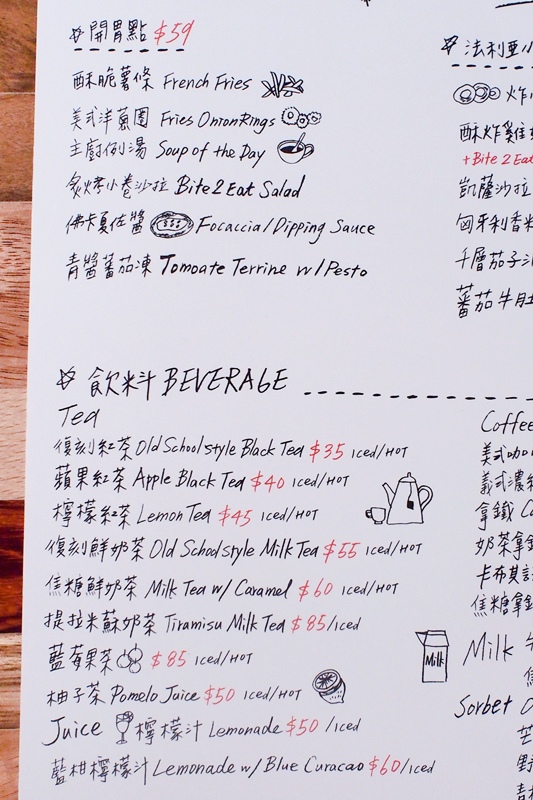 開胃點 $59
酥脆薯條 French Fries
美式洋蔥圈 Fries OnionRings
主廚例湯 Soup of the Day
炙烤小卷沙拉 Bite 2 Eat Salad
佛卡夏佐醬 Focaccia/Dipping Sauce
青醬蕃茄凍 Tomoate Terrine w/Pesto
法利亞小
炸
酥炸雞
+Bite 2 Eat
凱薩沙拉
匈牙利香料
千層茄子
蕃茄牛肚
飲料 BEVERAGE
Tea
復刻紅茶 Old School style Black Tea $35 Iced/HOT
蘋果紅茶 Apple Black Tea $40 Iced/HOT
檸檬紅茶 Lemon Tea $45 Iced/HOT
復刻鮮奶茶 Old School style Milk Tea $55 Iced/HOT
焦糖鮮奶茶 Milk Tea w/ Caramel $60 Iced/HOT
提拉米蘇奶茶 Tiramisu Milk Tea $85/Iced
藍莓果茶 $85 Iced/HOT
柚子茶 Pomelo Juice $50 Iced/HOT
Juice 檸檬汁 Lemonade $50 /Iced
藍柑檸檬汁 Lemonade w/ Blue Curacao $60/Iced
Coffee
美式咖
義式濃
拿鐵 Ca
奶茶拿
卡布其
焦糖拿
Milk
Milk 牛
焦
Sorbet
芒
野
青